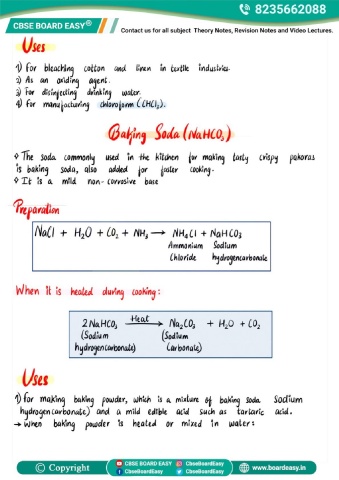 8235662088
CBSE BOARD EASY®
Contact us for all subject Theory Notes, Revision Notes and Video Lectures.
Uses
1) For bleaching cotton and linen in textile industries.
2) As an oxiding agent.
3) For disinfecting drinking water.
4) For manufacturing chloroform (CHCl₃).
Baking Soda (NaHCO₃)
❖ The soda commonly used in the kitchen for making tasty crispy pakoras
is baking soda, also added for faster cooking.
❖ It is a mild non-corrosive base
Preparation
NaCl + H₂O + CO₂ + NH₃ → NH₄Cl + NaHCO₃
Ammonium Sodium
Chloride hydrogencarbonate
When it is heated during cooking:
2NaHCO₃ Heat → Na₂CO₃ + H₂O + CO₂
(Sodium (Sodium
hydrogencarbonate) Carbonate)
Uses
1) For making baking powder, which is a mixture of baking soda Sodium
hydrogencarbonate) and a mild edible acid such as tartaric acid.
→ When baking powder is heated or mixed in water:
© Copyright
CBSE BOARD EASY CBSEBoardEasy
CBSEBoardEasy CBSEBoardEasy
www.boardeasy.in